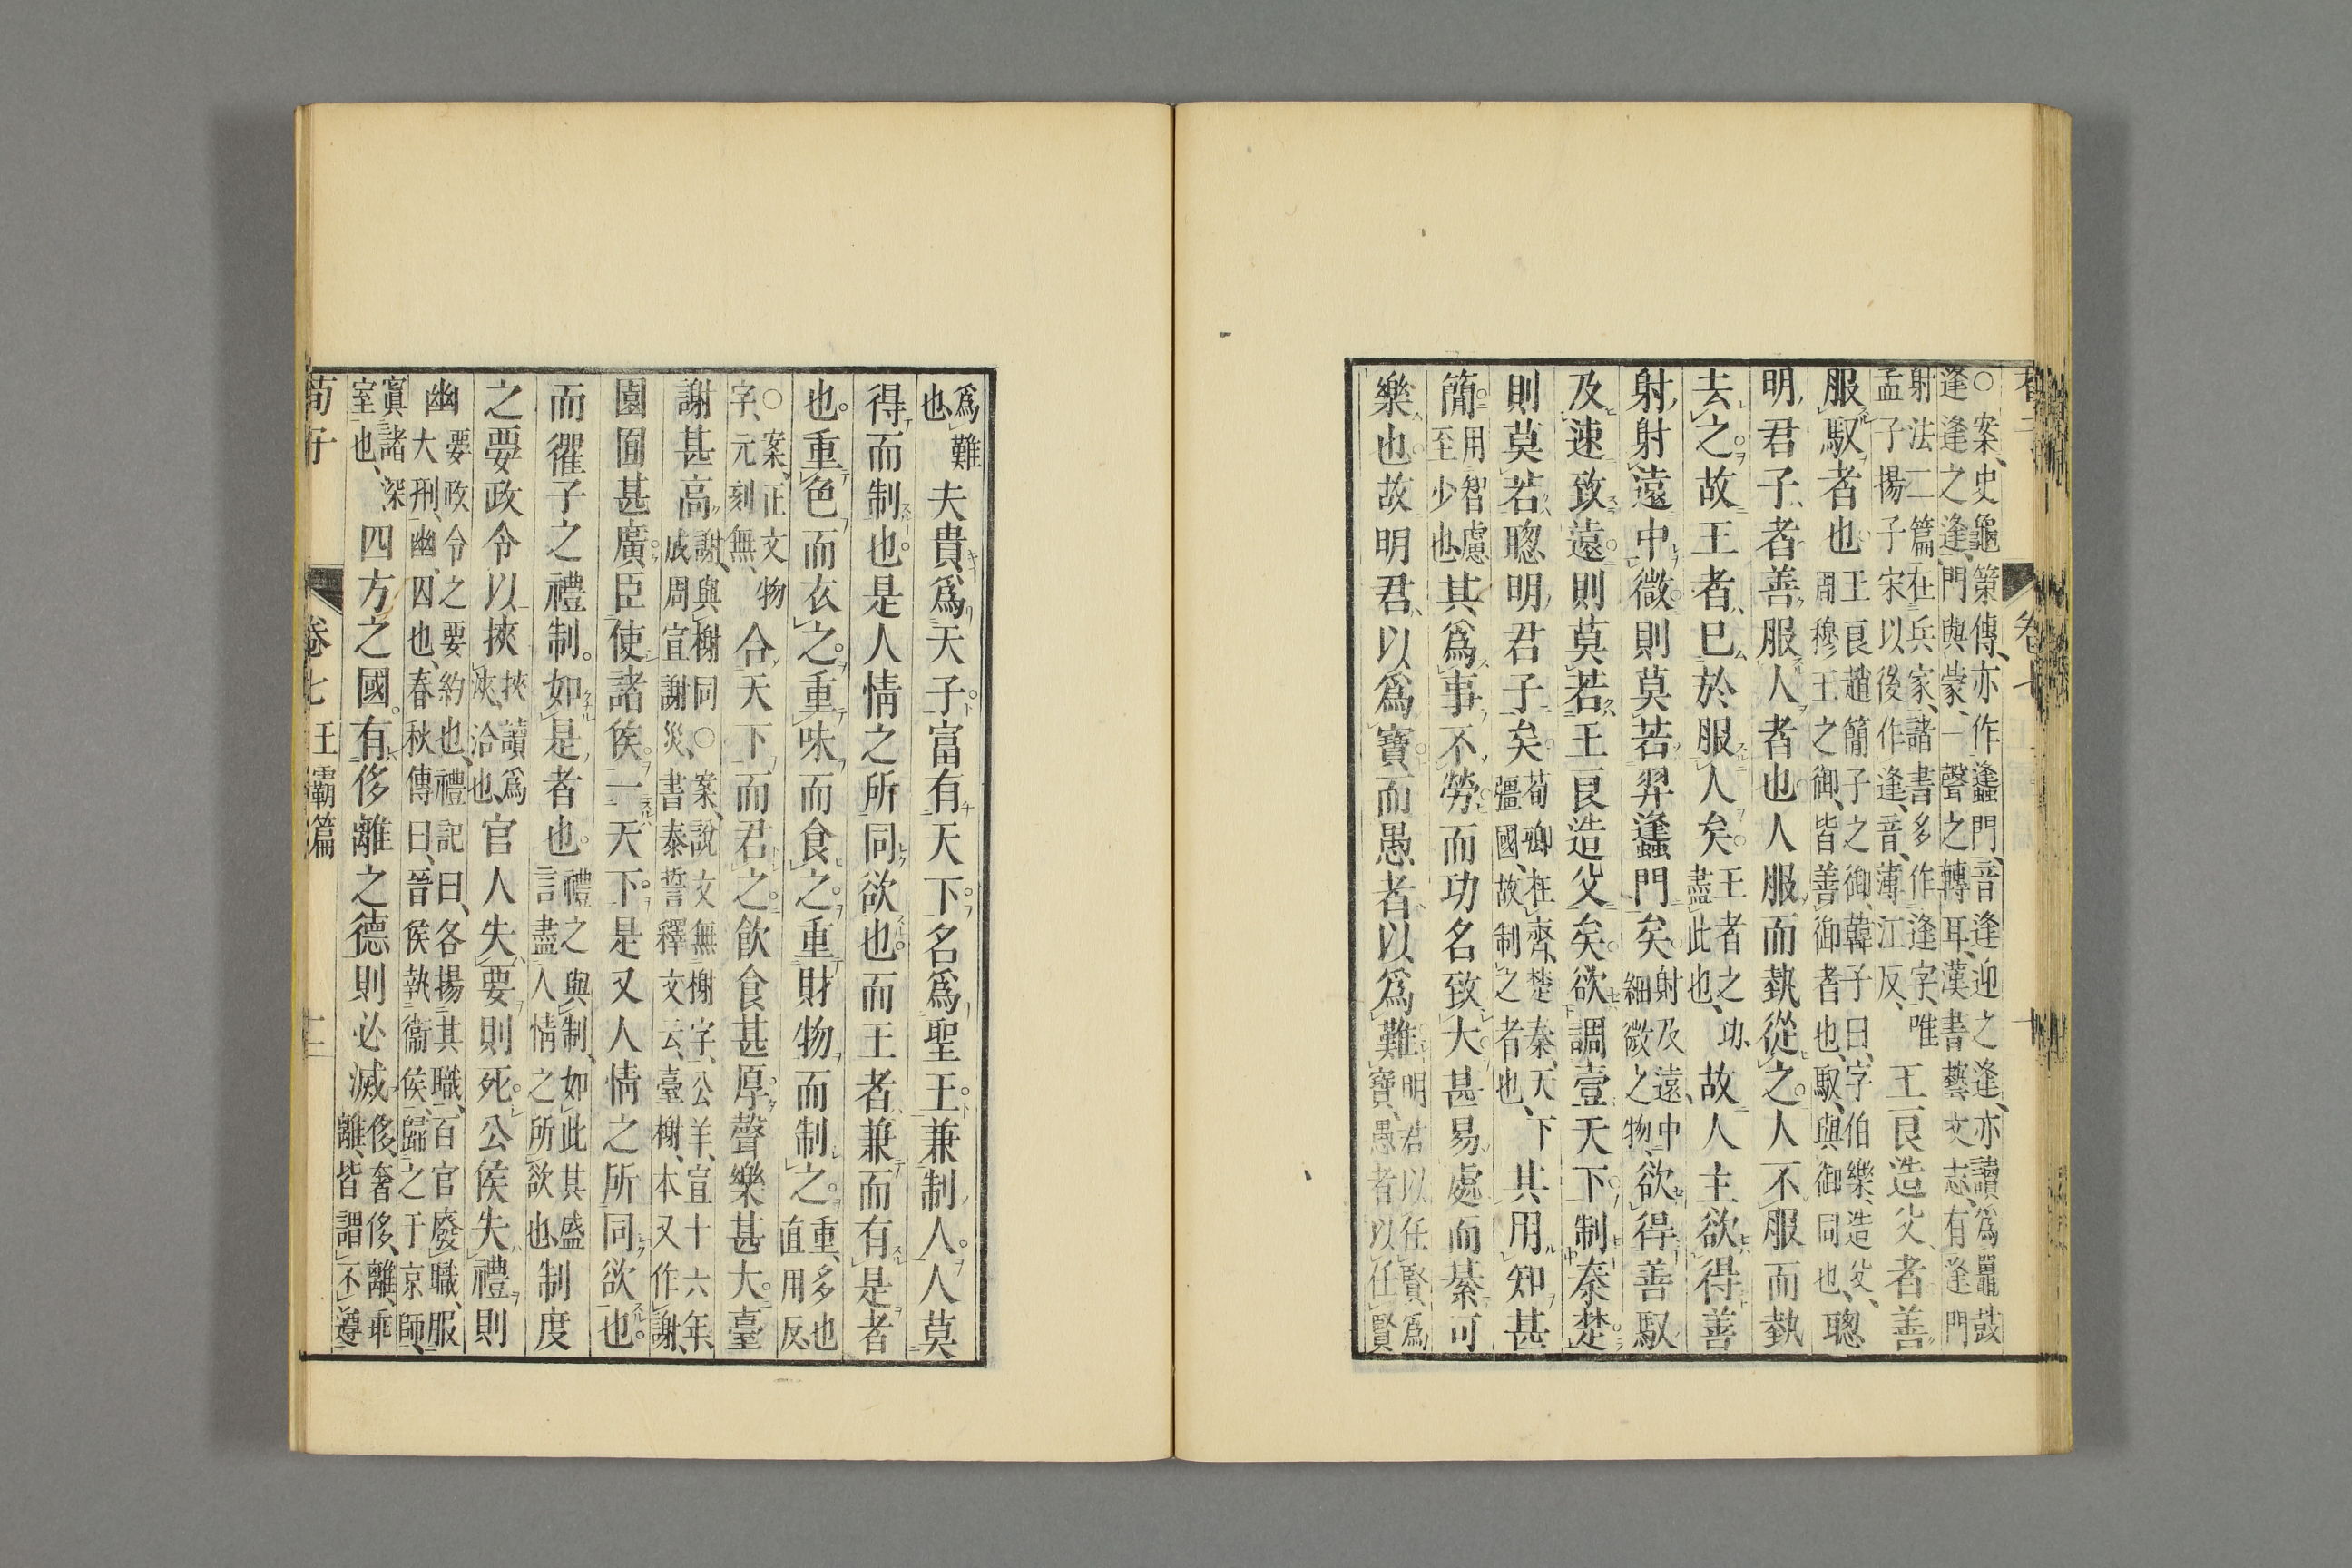 ○案、史龜策傳、亦作逢門、音逢迎之逢、亦讀爲鼉鼓
逢逢之逢、門與蒙、一聲之轉耳、漢書藝文志、有逢門
射法二篇、在兵家、諸書多作逢字、唯
孟子揚子宋以後作逄、音薄江反、
王良造父者善
服馭者也
王良趙簡子之御、韓子曰、字伯樂、造父、
周穆王之御、皆善御者也、馭與御同也、
聰
明君子者善服人者也人服而埶從之人不服而埶
去之故王者已於服人矣
王者之功、
盡此也、
故人主欲得善
射射遠中微則莫若羿逢門矣
射及遠、中
細微之物、
欲得善馭
及速致遠則莫若王良造父矣欲調壹天下制秦楚
則莫若聰明君子矣
荀卿在齊、楚秦、天下
彊國、故制之者也、
其用知甚
簡
用智慮
至少也、
其爲事不勞而功名致大甚易處而綦可
樂也故明君以爲寶而愚者以爲難
明君以任賢爲
寶、愚者以任賢
爲難
也、
夫貴爲天子富有天下名爲聖王兼制人人莫
得而制也是人情之所同欲也而王者兼而有是者
也重色而衣之重味而食之重財物而制之
重、多也
直用反、
○案、正文物
字、元刻無、
合天下而君之飮食甚厚聲樂甚大臺
謝甚高
謝、與榭同○案、說文無榭字、公羊、宣十六年、
成周宣謝災、書泰誓釋文云、臺榭、本又作謝、
園囿甚廣臣使諸侯一天下是又人情之所同欲也
而天子之禮制如是者也
禮之與制、如此其盛
言盡人情之所欲也、
制度
之要政令以挾
挾讀爲
浹、洽也、
官人失要則死公侯失禮則
幽
要政令之要約也、禮記曰、各揚其職、百官廢職、服
大刑、幽、囚也、春秋傳曰、晉侯執衞侯、歸之于京師、
寘諸深
室也、
四方之國有侈離之德則必滅
侈、奢侈、離、乖
離、皆謂不遵
荀子
卷七
王霸篇
十二